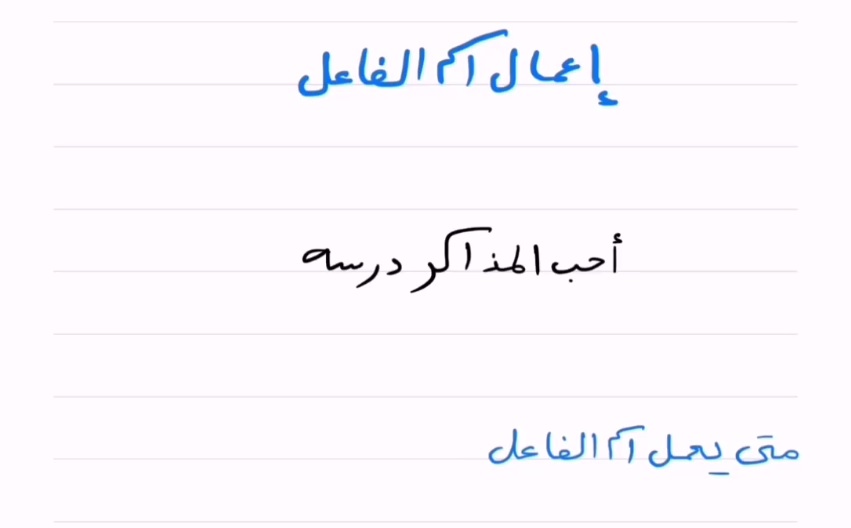 إعمال اسم الفاعل
أحب المذاكر درسه
متى يعمل اسم الفاعل